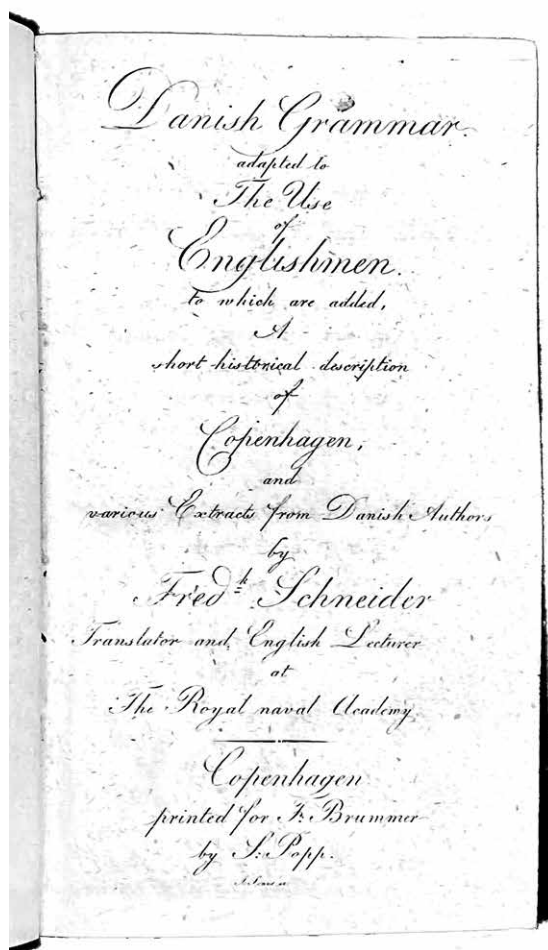 Danish Grammar.
adapted to
The Use
of
Englishmen.
to which are added,
A
short historical description
of
Copenhagen,
and
various Extracts from Danish Authors
by
Fred.k Schneider
Translator and English Lecturer
at
The Royal naval Academy
Copenhagen
printed for F. Brummer
by S: Popp.